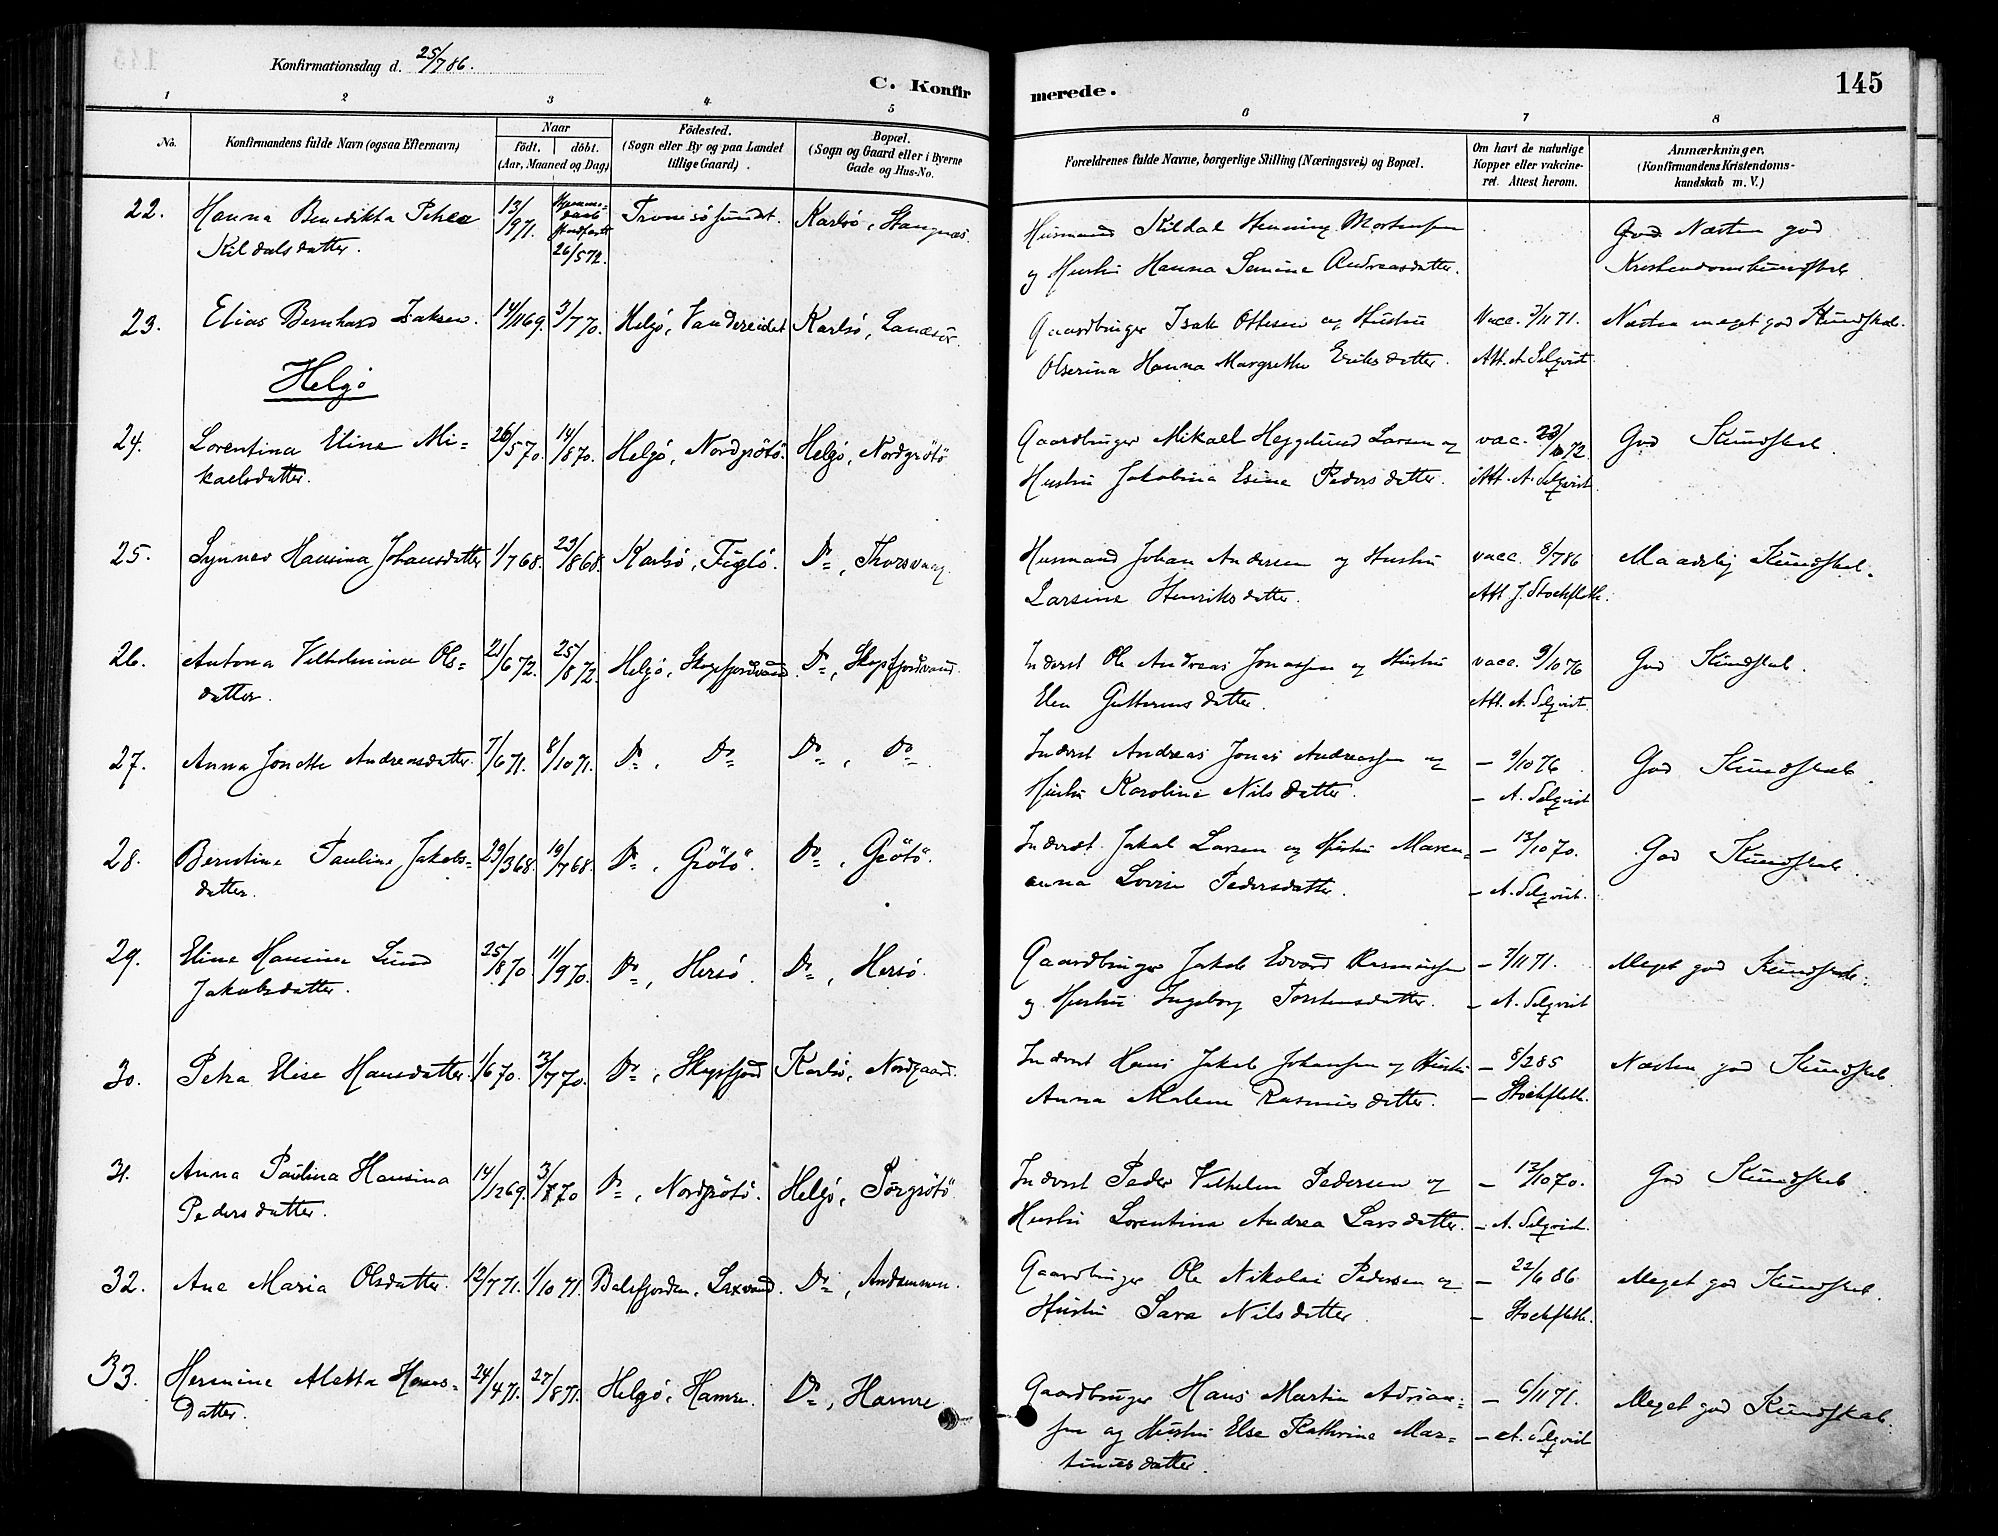 Konfirmationsdag d. 25/7 86.
C. Konfirmerede.
145
1 2 3 4 5 6 7 8
No.
Konfirmandens fulde Navn (ogsaa Efternavn)
Naar
födt. döbt.
(Aar, Maaned og Dag)
Födested.
(Sogn eller By og paa Landet
tillige Gaard).
Bopæl.
(Sogn og Gaard eller i Byerne
Gade og Hus-No.
Forældrenes fulde Navne, borgerlige Stilling (Næringsvei) og Bopæl.
Om havt de naturlige
Kopper eller vakcine-
ret. Attest herom.
Anmærkninger.
(Konfirmandens Kristendoms-
kundskab m. V.)
22. Hanna Benedikta Petrea 13/9 71. Hjemme- døbt 26/5 72. Tromsösundet. Karlsö, Stangnæs. Husmand Kildal Henning Mortensen God Næsten god
Kildalsdatter. og Hustru Hanna Senine Andreasdatter. Kristendomskundskab
23. Elias Bernhard Isaksen. 14/11 69. 3/7 70. Helgö, Vandereidet Karlsö, Gaardbruger Isak Ottesen og Hustru Vacc. 7/11 71. Næsten meget god Kundskab.
Olserina Hanna Margrethe Eriksdatter. Att. A. Selqvist
Helgö
24. Lorentina Eline Mi- 26/5 70. 14/8 70. Helgö, Nordgrötö. Helgö, Nordgrötö Gaardbruger Mikael Heggelund Larsen og vac. 72. God Kundskab.
kaelsdatter. Hustru Jakobina Esine Pedersdatter. Att. A. Selqvist
25. Synnev Hansina Johansdatter 1/7 68. 23/8 68. Karlsö, Fuglö. Do, Thorsvaag. Husmand Johan Andersen og Hustru vacc. 8/7 86 Maadelig Kundskab.
Larsine Henriksdatter. Att J. Stockfleth.
26. Antona Vilhelmina Ols- 21/6 72. 25/8 72. Helgö, Skogsfjordvand. Do, Skogsfjordvand. Inderst Ole Andreas Jonassen og Hustru vacc. 9/10 76 God Kundskab.
datter. Elen Guttormsdatter. Att. A. Selqvist.
27. Anna Jonette Andreasdatter. 7/6 71. 8/10 71. Do, Do Do, Do. Inderst Andreas Jonas Andreassen og – 9/10 76 God Kundskab.
Hustru Karoline Nilsdatter. – A. Selqvist
28. Berntine Pauline Jakobs- 29/3 68. 19/7 68. Do, Grötö. Do, Grötö. Inderst Jakob Larsen og Hustru Maren- – 13/10 70. God Kundskab.
datter. anna Lovise Pedersdatter. – A. Selqvist.
29. Eline Hansine Lund 25/8 70. 11/9 70. Do, Hersö. Do, Hersö. Gaardbruger Jakob Edvard Rasmussen – 7/11 71. Meget god Kundskab.
Jakobsdatter. og Hustru Ingeborg Torstensdatter. – A. Selqvist
30. Petra Elise Hansdatter. 1/6 70. /7 70. Do, Skogsfjord Karlsö, Nordgaard. Inderst Hans Jakob Johansen og Hustru – 8/2 85 Næsten god Kundskab.
Anna Malene Rasmusdatter. – Stockfleth.
31. Anna Paulina Hansina 14/12 69. 3/7 70 Do, Nordgrötö. Helgö, Sörgrötö Inderst Peder Vilhelm Pedersen og – 13/10 70. God Kundskab.
Pedersdatter. Hustru Lorentina Andrea Larsdatter. – A. Selqvist.
32. Ane Maria Olsdatter. 12/7 71. 1/10 71. Balsfjorden, Laxvand. Do, Andammen. Gaardbruger Ole Nikolai Pedersen og – 22/6 86. Meget god Kundskab.
Hustru Sara Nilsdatter – Stockfleth.
33. Hermine Aletta Hans- 24/4 71. 27/8 71. Helgö, Hamre. Do, Hamre Gaardbruger Hans Martin Adrian- – 6/11 71. Meget god Kundskab.
datter. sen og Hustru Else Kathrine Mar- – A. Selqvist
tinusdatter.